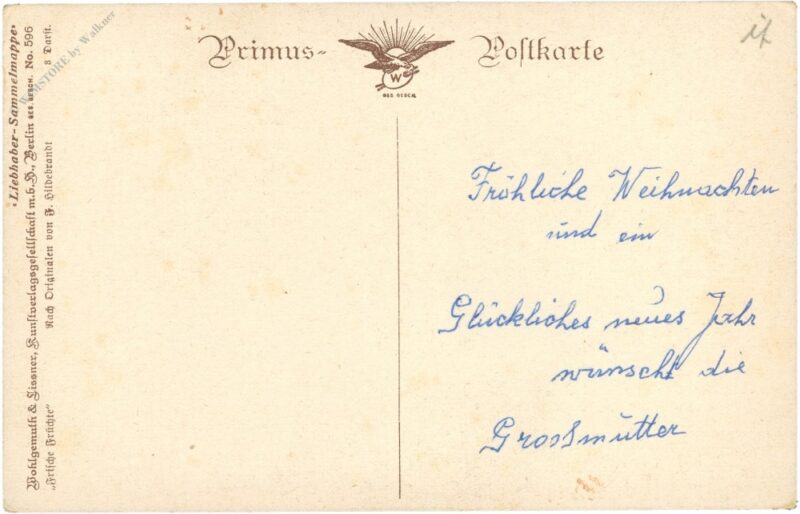 Primus- Postkarte
GES. GESCH.
W
Fröhliche Weihnachten
und ein
Glückliches neues Jahr
wünscht die
Grossmutter
"Liebhaber-Sammelmappe"
Wohlgemuth & Lissner, Kunstverlagsgesellschaft m.b.H., Berlin GES. GESCH. No. 596
"Frische Früchte" Nach Originalen von F. Hildebrandt 8 Darst.
by Walkner